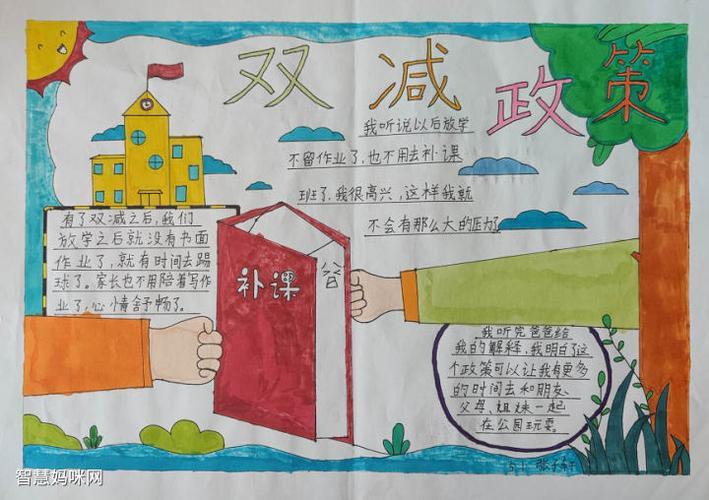 双减政策
我听说以后放学
不留作业了,也不用去补课
班了,我很高兴,这样我就
不会有那么大的压力了
有了双减之后,我们
放学之后就没有书面
作业了,就有时间去踢
球了。家长也不用陪着写作
业了,心情舒畅了。
补课
我听完爸爸给
我的解释,我明白了这
个政策可以让我有更多
的时间去和朋友、
父母、姐妹一起
在公园玩耍。
智慧妈咪网